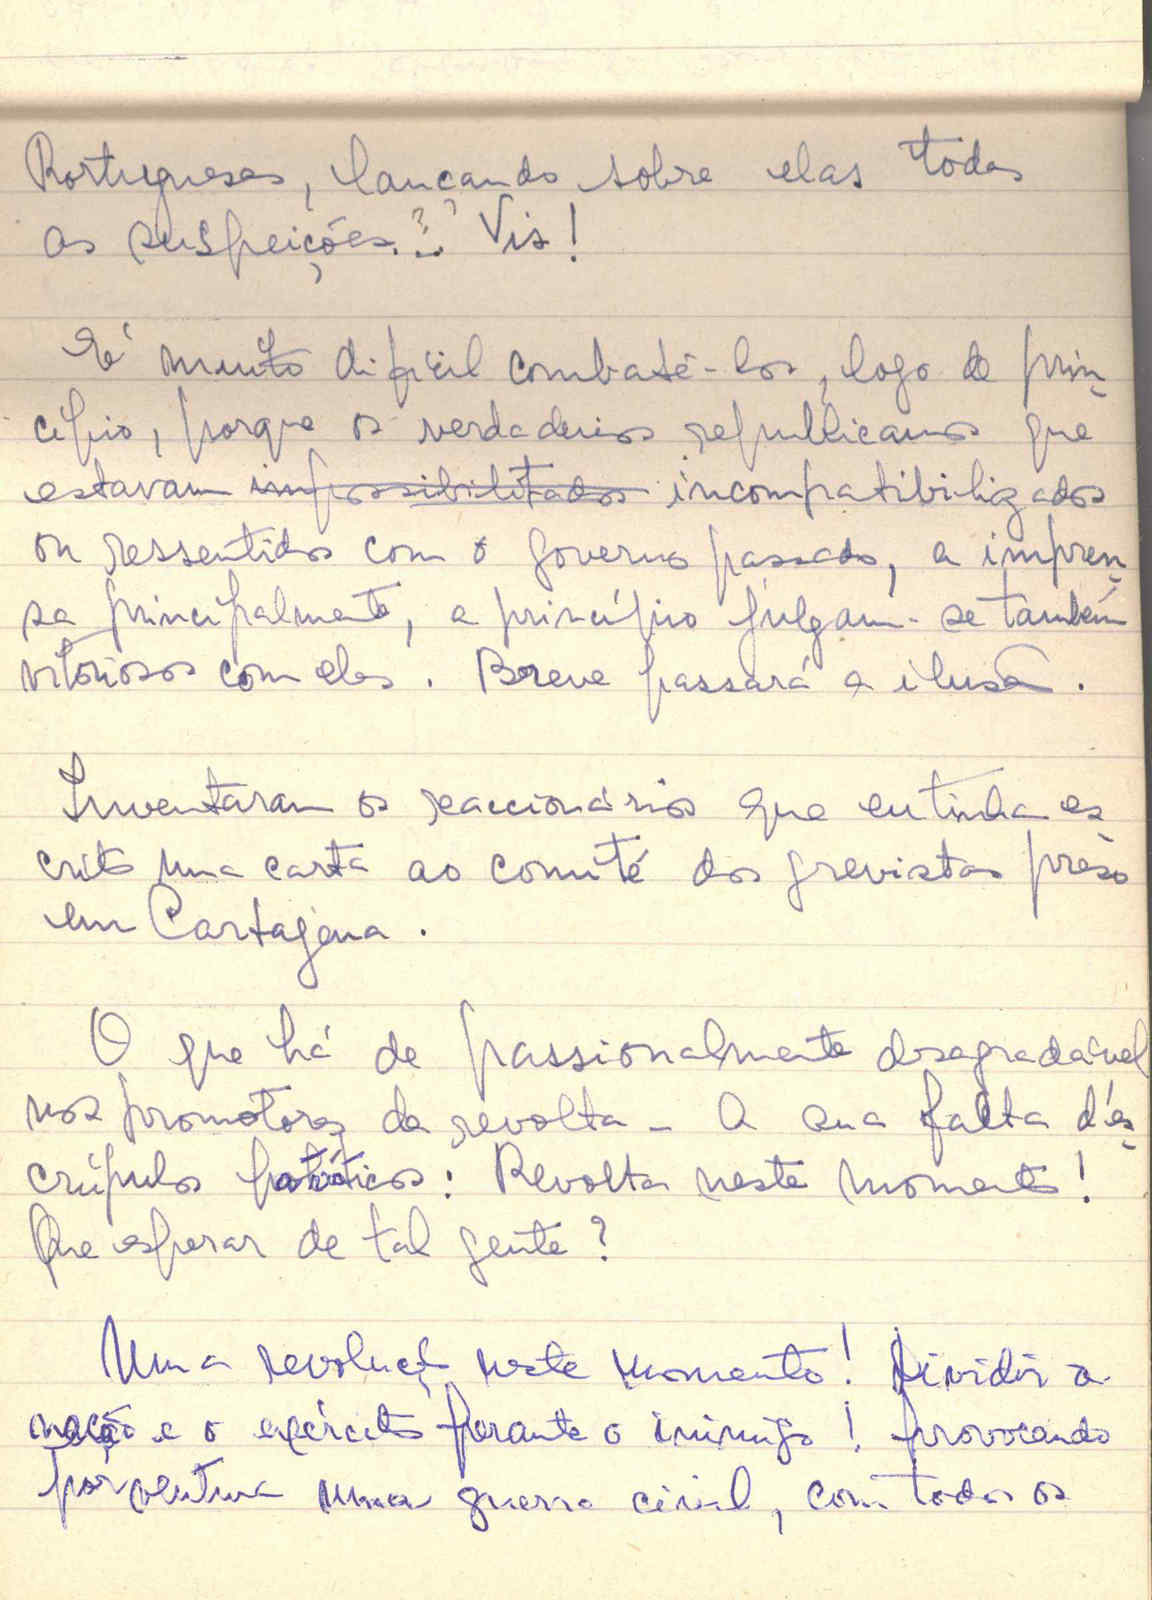 Portuguesas, lançando sobre elas todas
as suspeições..? Vis!
É muito difícil combatê-los, logo de prin-
cípio, porque os verdadeiros republicanos que
estavam impossibilitados incompatibilizados
ou ressentidos com o governo passado, a impren-
sa principalmente, a princípio julgam-se também
vitoriosos com eles. Breve passará a ilusão.
Inventaram os reaccionários que eu tinha es
crito uma carta ao comité dos grevistas preso
em Cartagena.
O que há de passionalmente desagradável
nos promotores da revolta - A sua falta d'es-
crúpulos patrióticos: Revolta neste momento!
Que esperar de tal gente?
Uma revolução neste momento! Dividir a
nação e o exército perante o inimigo! provocando
porventura uma guerra civil, com todos os